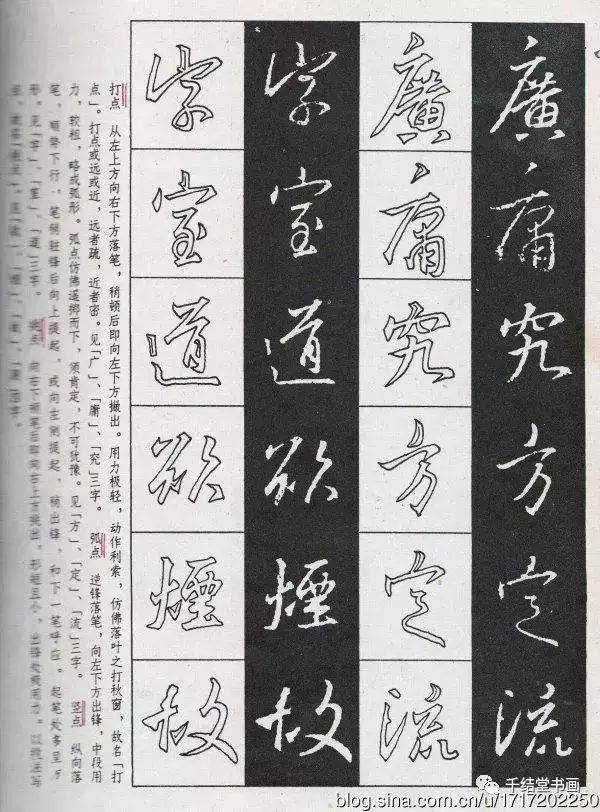 廣庸究方定流
廣庸究方定流
字室道欲煙故
字室道欲煙故
打点　从左上方向右下方落笔，稍顿后即向左下方撇出。用力极轻，动作利索，仿佛落叶之打秋窗，故名「打
点」。打点或远或近，远者疏，近者密。见「广」、「庸」、「究」三字。　弧点　逆锋落笔，向左下方出锋，中段用
力，较粗，略成弧形。弧点仿佛遥掷而下，须肯定，不可犹豫。见「方」、「定」、「流」三字。　竖点　纵向落
笔，顺势下行，笔稍驻锋后向上提起，或向左侧提起，稍出锋，和下一笔呼应。起笔处多呈方
形。见「字」、「室」、「道」三字。　挑点　向右下顿笔后即向右上方挑出，形短且小，出锋处须用力。以挑法写
千结堂书画
blog.sina.com.cn/u/1717202250